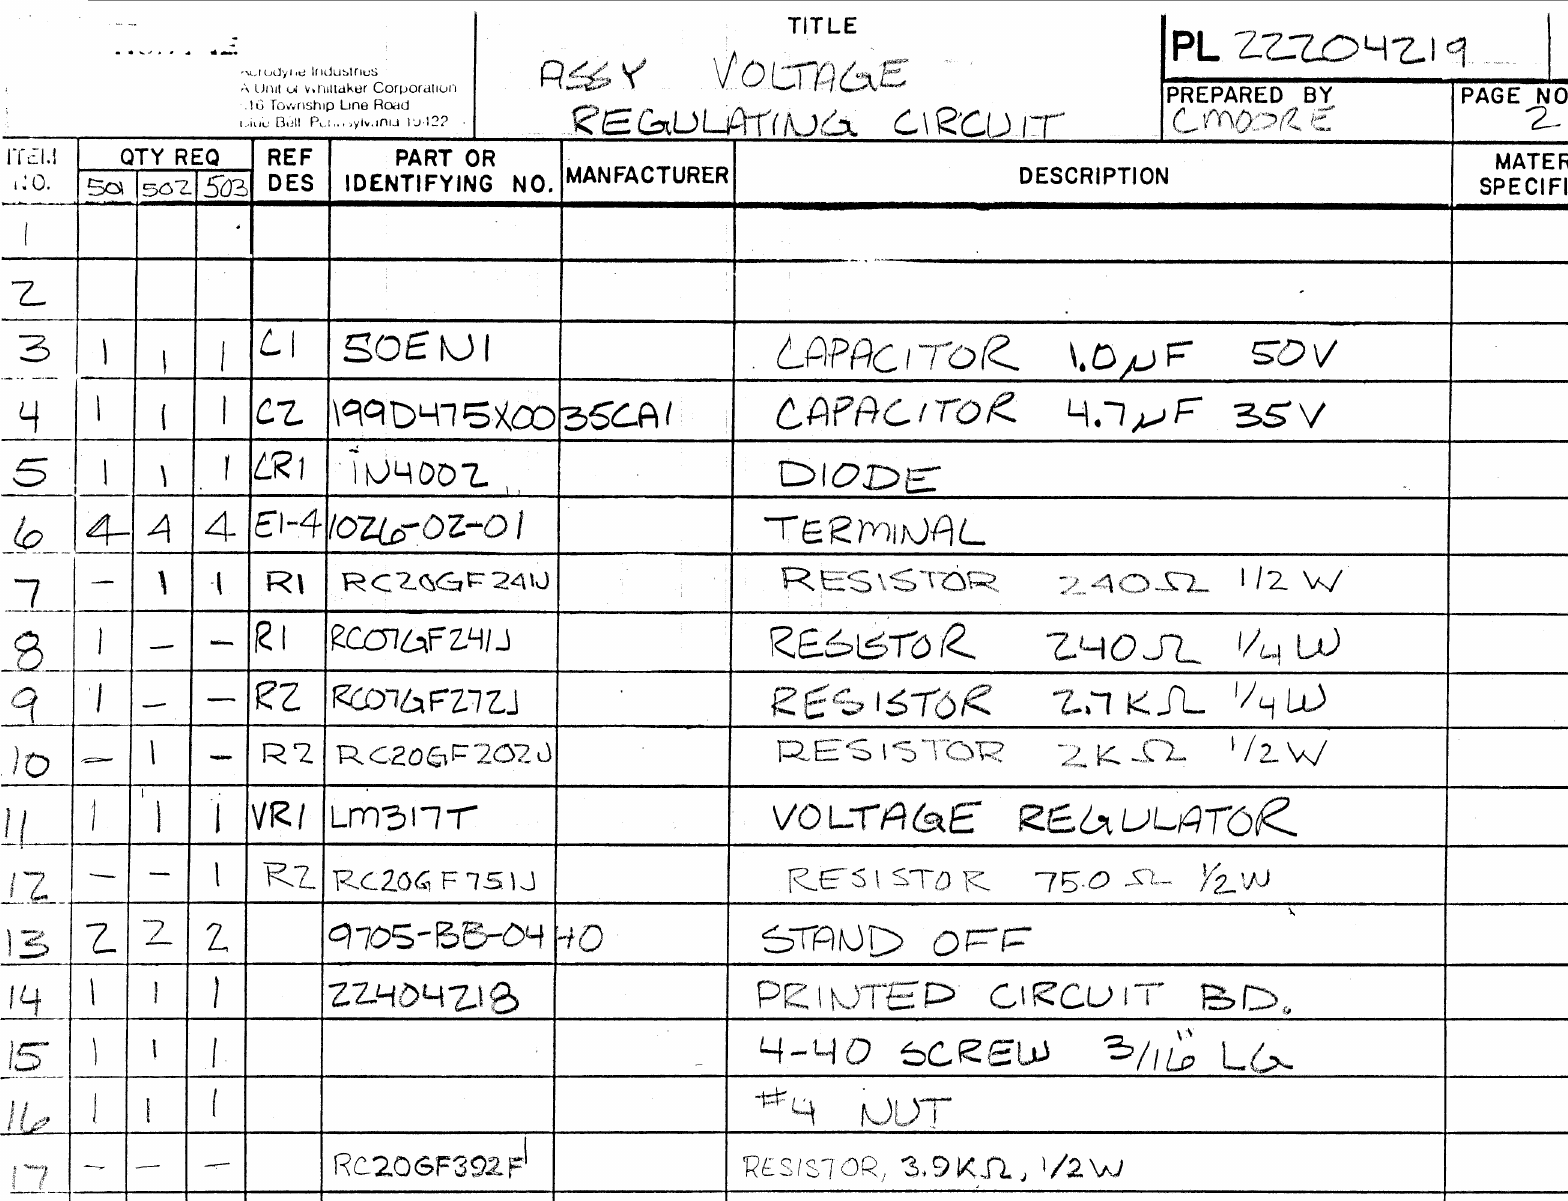 TITLE
ASSY VOLTAGE
REGULATING CIRCUIT
Industries
A Unit of Whittaker Corporation
Township Line Road
PL 22204219
PREPARED BY
CMOORE
PAGE NO
2
ITEM NO. QTY REQ REF DES PART OR IDENTIFYING NO. MANFACTURER DESCRIPTION MATER SPECIFI
501 502 503
1
2
3 1 1 1 C1 50EN1 CAPACITOR 1.0µF 50V
4 1 1 1 C2 199D475X0035CA1 CAPACITOR 4.7µF 35V
5 1 1 1 CR1 1N4002 DIODE
6 4 4 4 E1-4 1026-02-01 TERMINAL
7 - 1 1 R1 RC20GF241J RESISTOR 240Ω 1/2 W
8 1 - - R1 RC07GF241J RESISTOR 240Ω 1/4 W
9 1 - - R2 RC07GF272J RESISTOR 2.7KΩ 1/4W
10 - 1 - R2 RC20GF202J RESISTOR 2KΩ 1/2W
11 1 1 1 VR1 LM317T VOLTAGE REGULATOR
12 - - 1 R2 RC20GF751J RESISTOR 750Ω 1/2W
13 2 2 2 9705-BB-0440 STAND OFF
14 1 1 1 22404218 PRINTED CIRCUIT BD.
15 1 1 1 4-40 SCREW 3/16" LG
16 1 1 1 #4 NUT
17 - - - RC20GF392F RESISTOR, 3.9KΩ, 1/2W